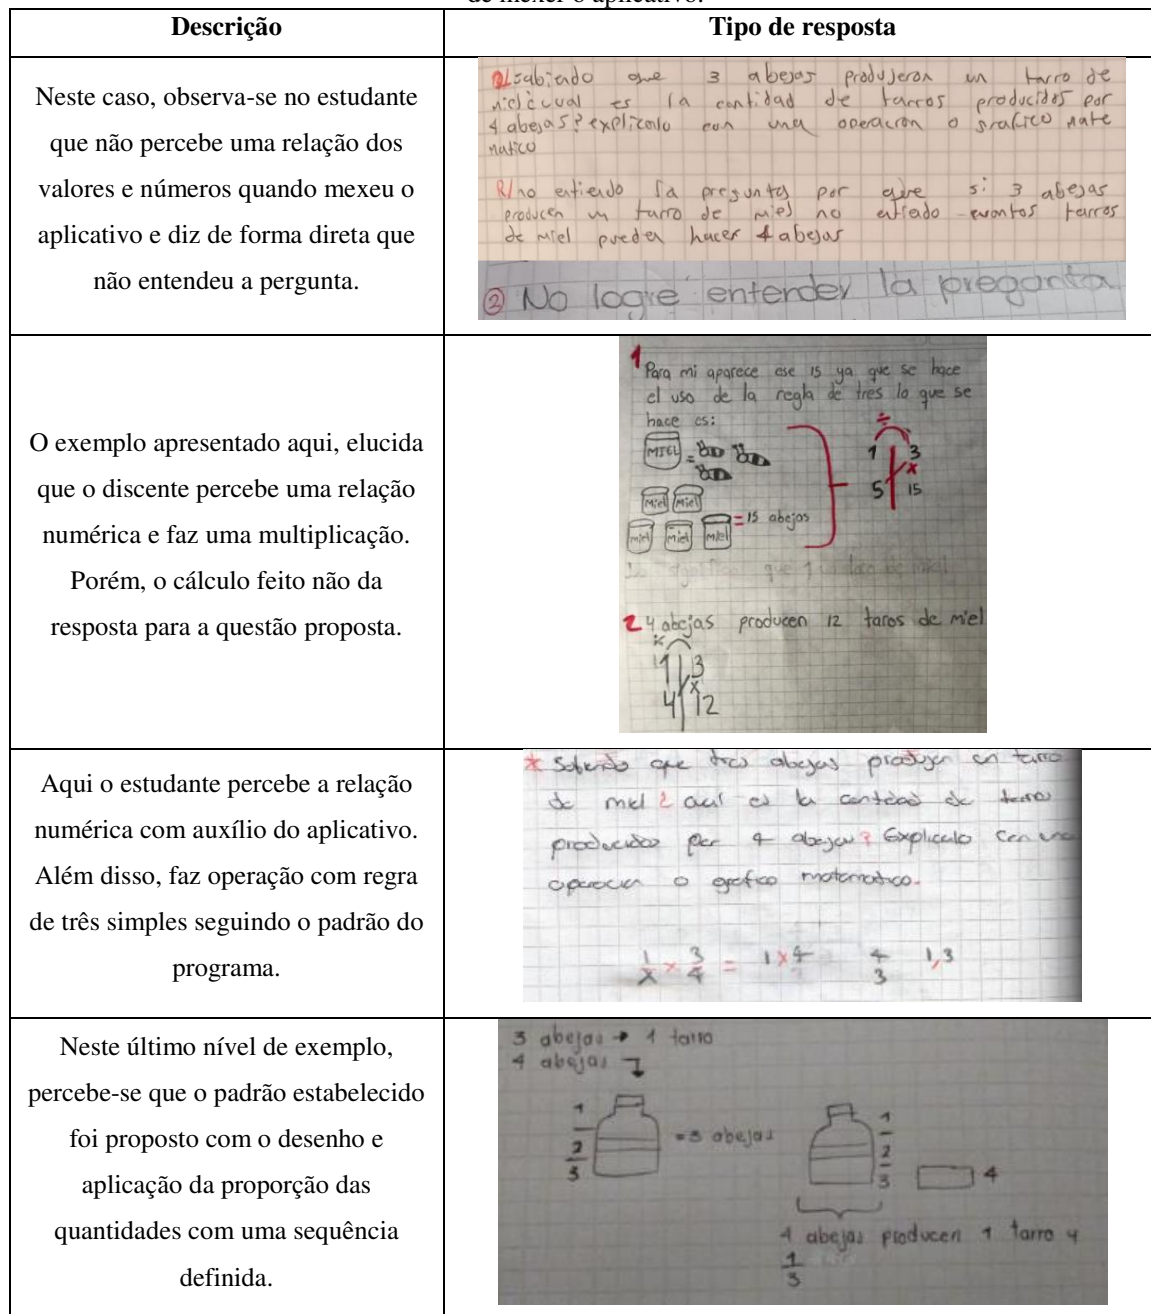 de mexer o aplicativo.
Descrição
Tipo de resposta
Neste caso, observa-se no estudante
que não percebe uma relação dos
valores e números quando mexeu o
aplicativo e diz de forma direta que
não entendeu a pergunta.
sabiendo que 3 abejas produjeron un tarro de
miel cual es la cantidad de tarros producidos por
4 abejas? explicalo con una operacion o grafico mate
matico
R/ no entiendo la pregunta por que si 3 abejas
producen un tarro de miel no entiendo cuantos tarros
de miel pueden hacer 4 abejas
② No logre entender la pregunta
O exemplo apresentado aqui, elucida
que o discente percebe uma relação
numérica e faz uma multiplicação.
Porém, o cálculo feito não da
resposta para a questão proposta.
1 Para mi aparece ese 15 ya que se hace
el uso de la regla de tres lo que se
hace es:
MIEL =
÷
1 3
x
5 15
Miel Miel
miel miel miel = 15 abejas
2 4 abejas producen 12 taros de miel
1 3
x
4 12
Aqui o estudante percebe a relação
numérica com auxílio do aplicativo.
Além disso, faz operação com regra
de três simples seguindo o padrão do
programa.
* Sabiendo que tres abejas producen un tarro
de miel ¿cual es la cantidad de tarros
producidos por 4 abejas? Explicalo con una
operacion o grafico matematico.
1/x × 3/4 = 1×4 4/3 1,3
Neste último nível de exemplo,
percebe-se que o padrão estabelecido
foi proposto com o desenho e
aplicação da proporção das
quantidades com uma sequência
definida.
3 abejas → 1 tarro
4 abejas
1
2
3
= 3 abejas
1
2
3
4
4 abejas producen 1 tarro y
1/3